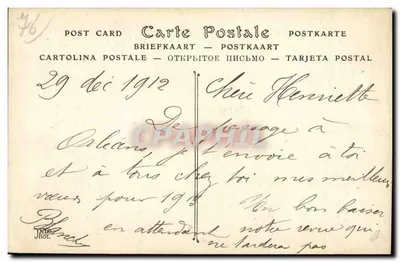 76
POST CARD Carte Postale POSTKARTE
BRIEFKAART — POSTKAART
CARTOLINA POSTALE — ОТКРЫТОЕ ПИСЬМО — TARJETA POSTAL
29 déc 1912 Chère Henriette
De passage à
Orléans, je t'envoie à toi
et à tous chez toi mes meilleurs
vœux pour 1913
Un bon baiser
en attendant notre revue qui
ne tardera pas
CPAPHIL
ND
Phot.